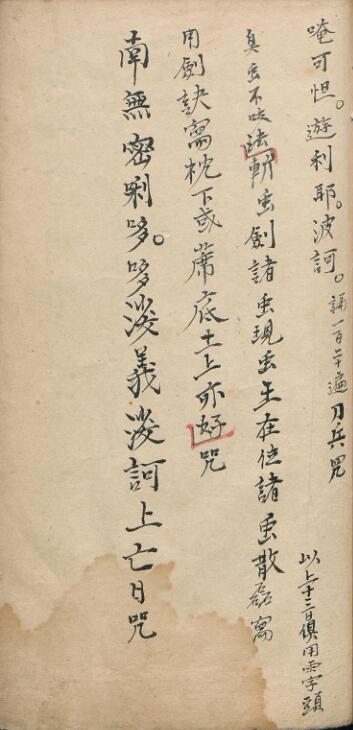 唵可怛。遊利耶。波訶。誦一百二十遍刀兵咒
以上十三日俱用雲字頭
真虫不咬法斬虫劍諸虫現虫王在位諸虫散磊寫
用劍訣寫枕下或蓆底土上亦好咒
南無密剎哆。哆淡義淡訶上亡日咒